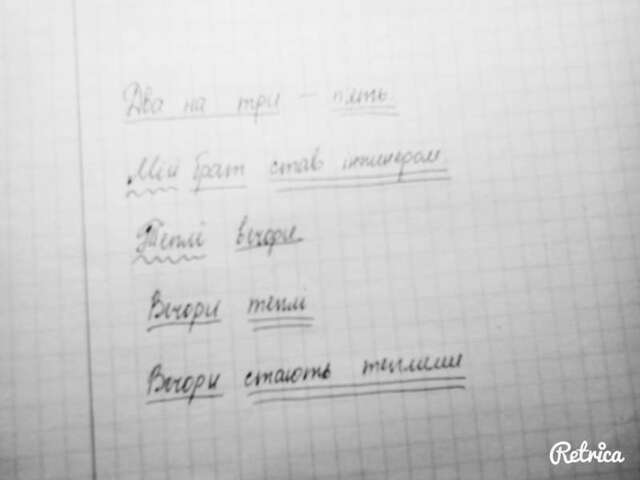 Два на три – п'ять.
Мій брат став інженером
Теплі вечори
Вечори теплі
Вечори стають теплими
Retrica